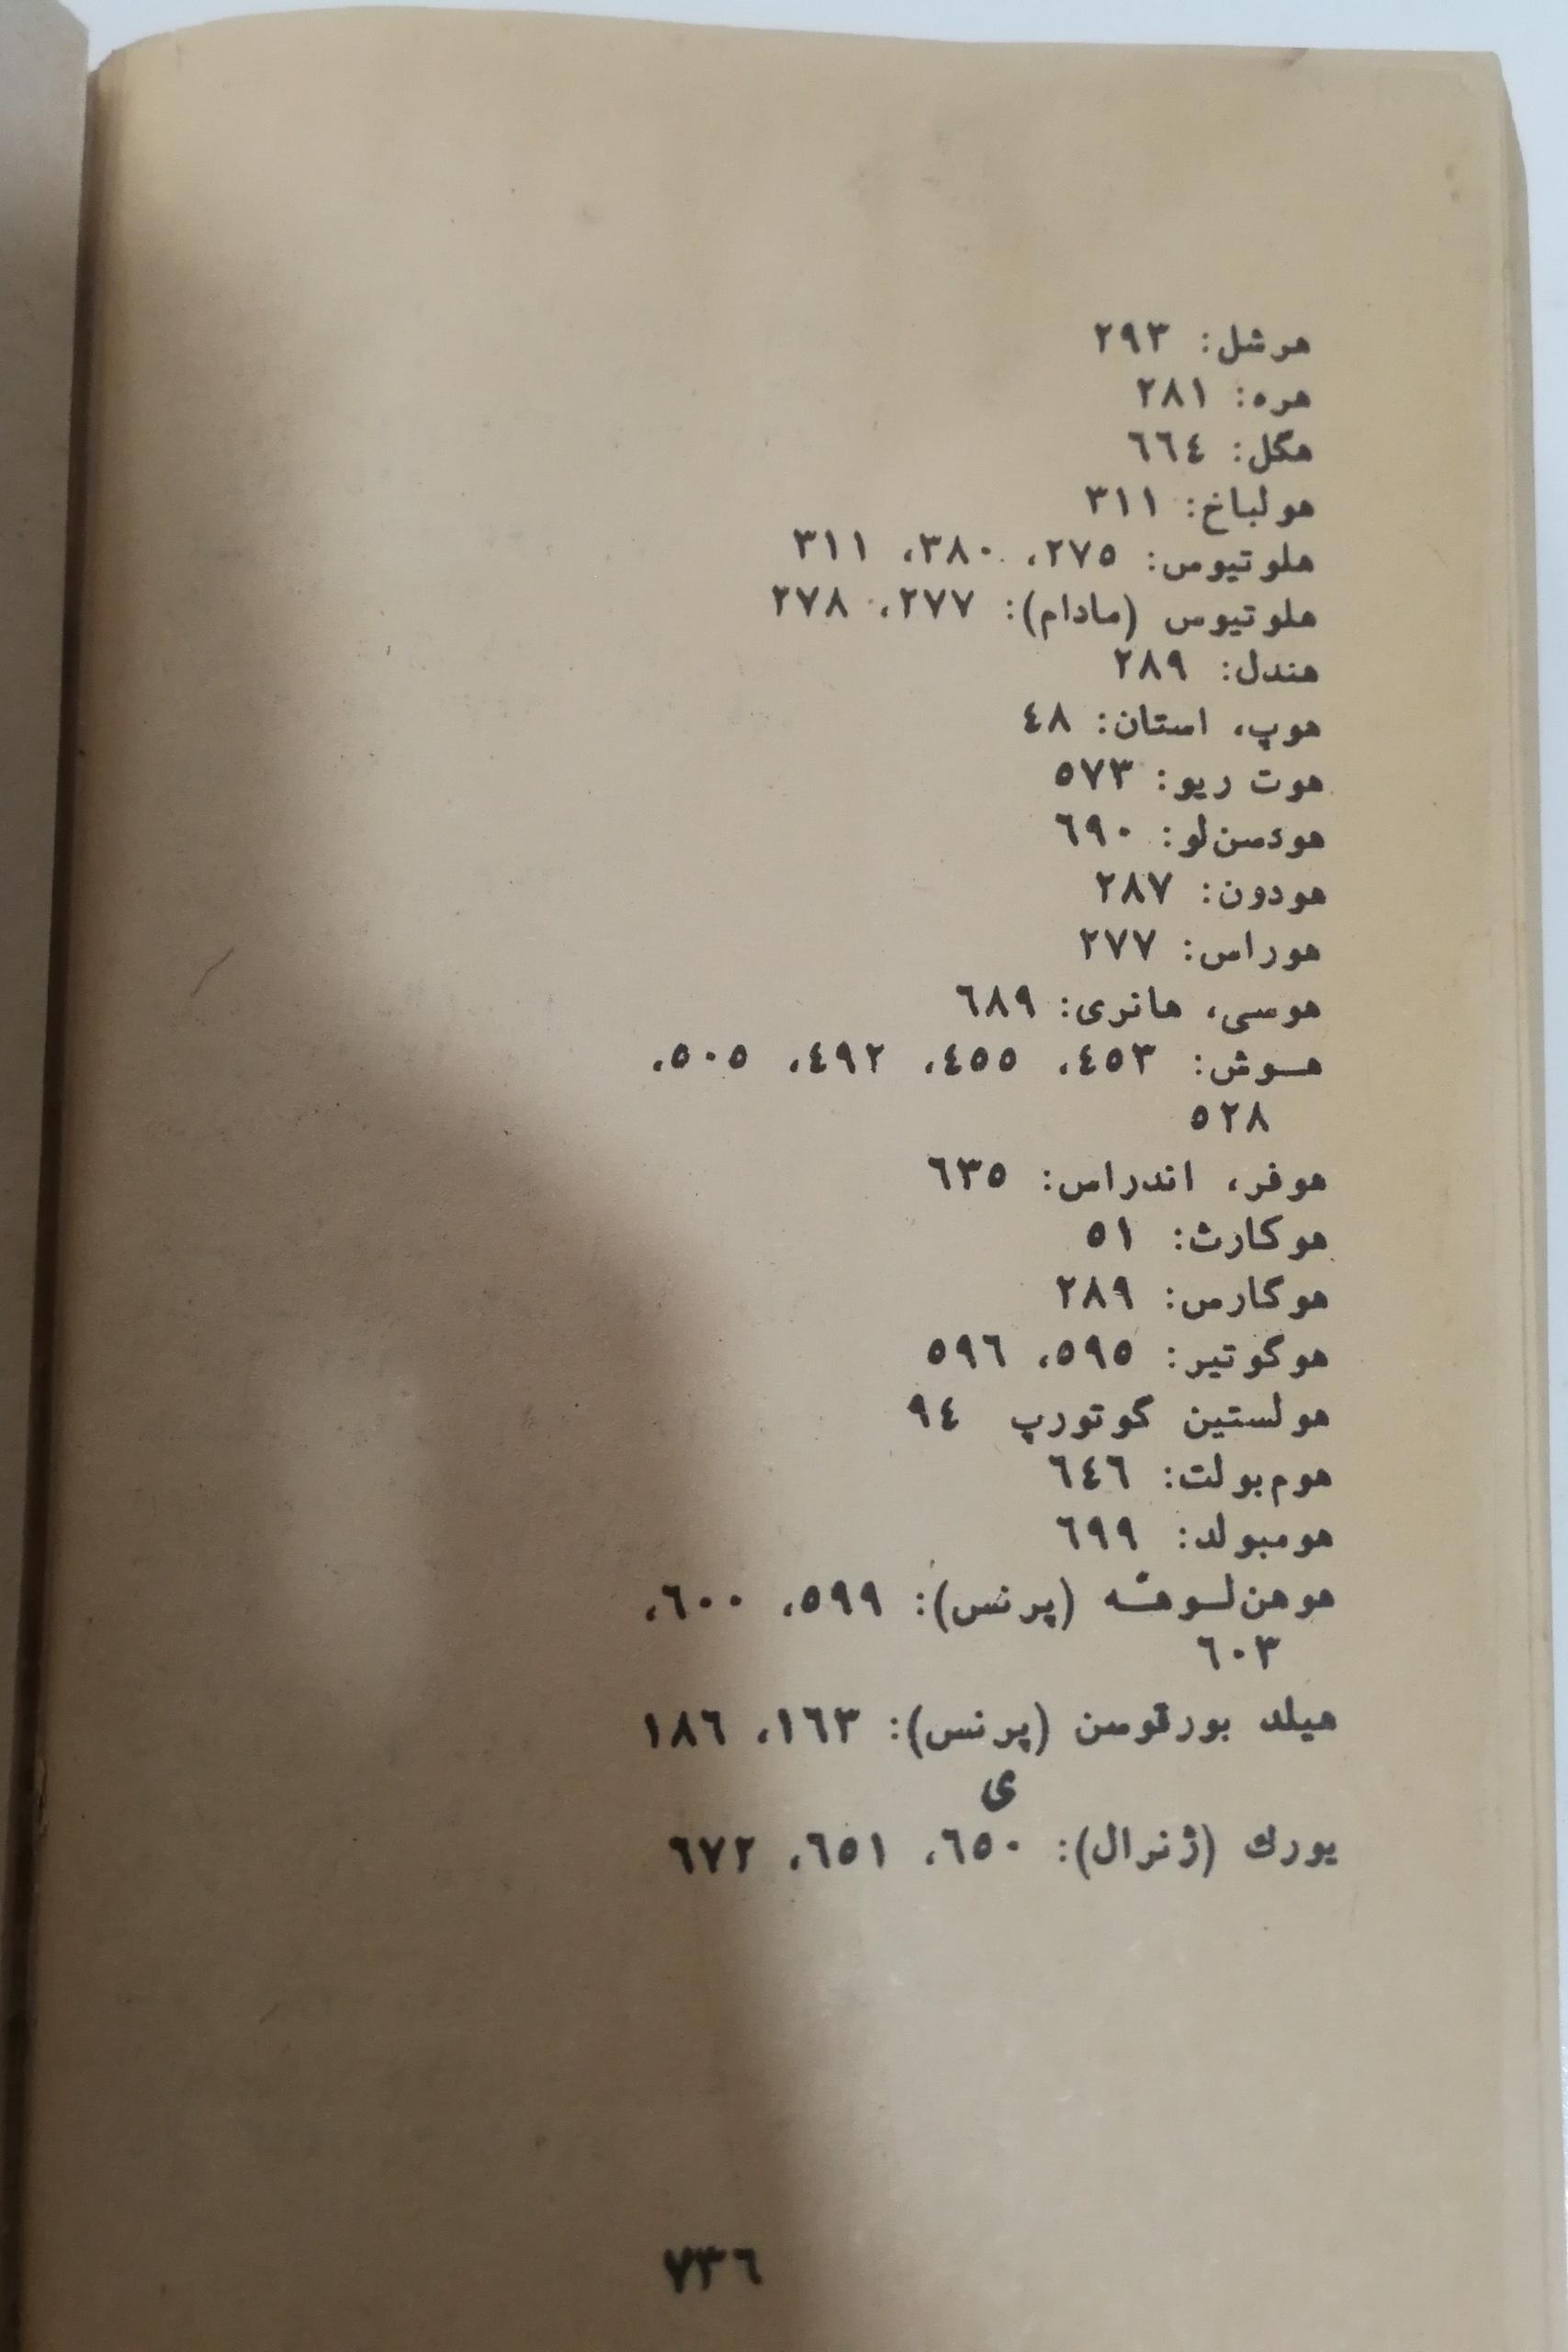 هرشل: ۲۹۳
هره: ۲۸۱
هگل: ٦٦٤
هولباخ: ۳۱۱
هلوتیوس: ۲۷٥، ۳۸۰، ۳۱۱
هلوتیوس (مادام): ۲۷۷، ۲۷۸
هندل: ۲۸۹
هوپ، استان: ٤۸
هوت ریو: ٥۷۳
هودسن‌لو: ٦۹۰
هودون: ۲۸۷
هوراس: ۲۷۷
هوسی، هانری: ٦۸۹
هـوش: ٤٥۳، ٤٥٥، ٤۹۲، ٥۰٥،
٥۲۸
هوفر، اندراس: ٦۳٥
هوکارث: ٥۱
هوگارس: ۲۸۹
هوگوتیر: ٥۹٥، ٥۹٦
هولستین گوتورپ ۹٤
هوم‌بولت: ٦٤٦
هومبولد: ٦۹۹
هوهن‌لـوهـه (پرنس): ٥۹۹، ٦۰۰،
٦۰۳
هیلد بورقوسن (پرنس): ۱٦۳، ۱۸٦
ی
یورك (ژنرال): ٦٥۰، ٦٥۱، ٦۷۲
۷۳٦